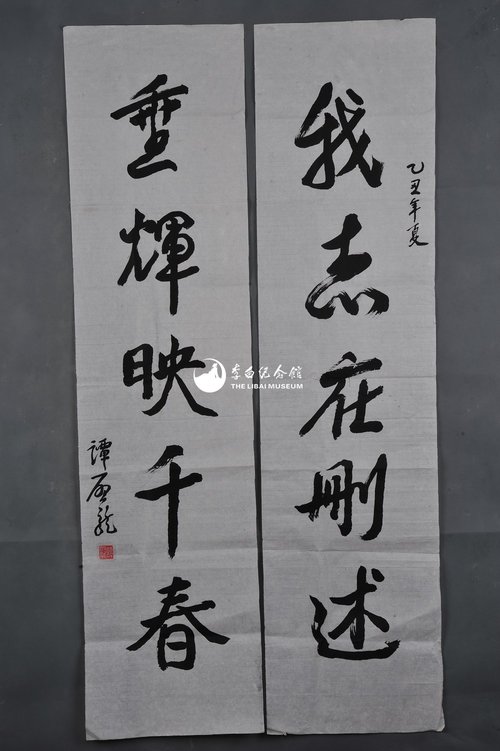 我志在删述
乙丑年夏
垂輝映千春
譚启龍
李白纪念馆
THE LIBAI MUSEUM